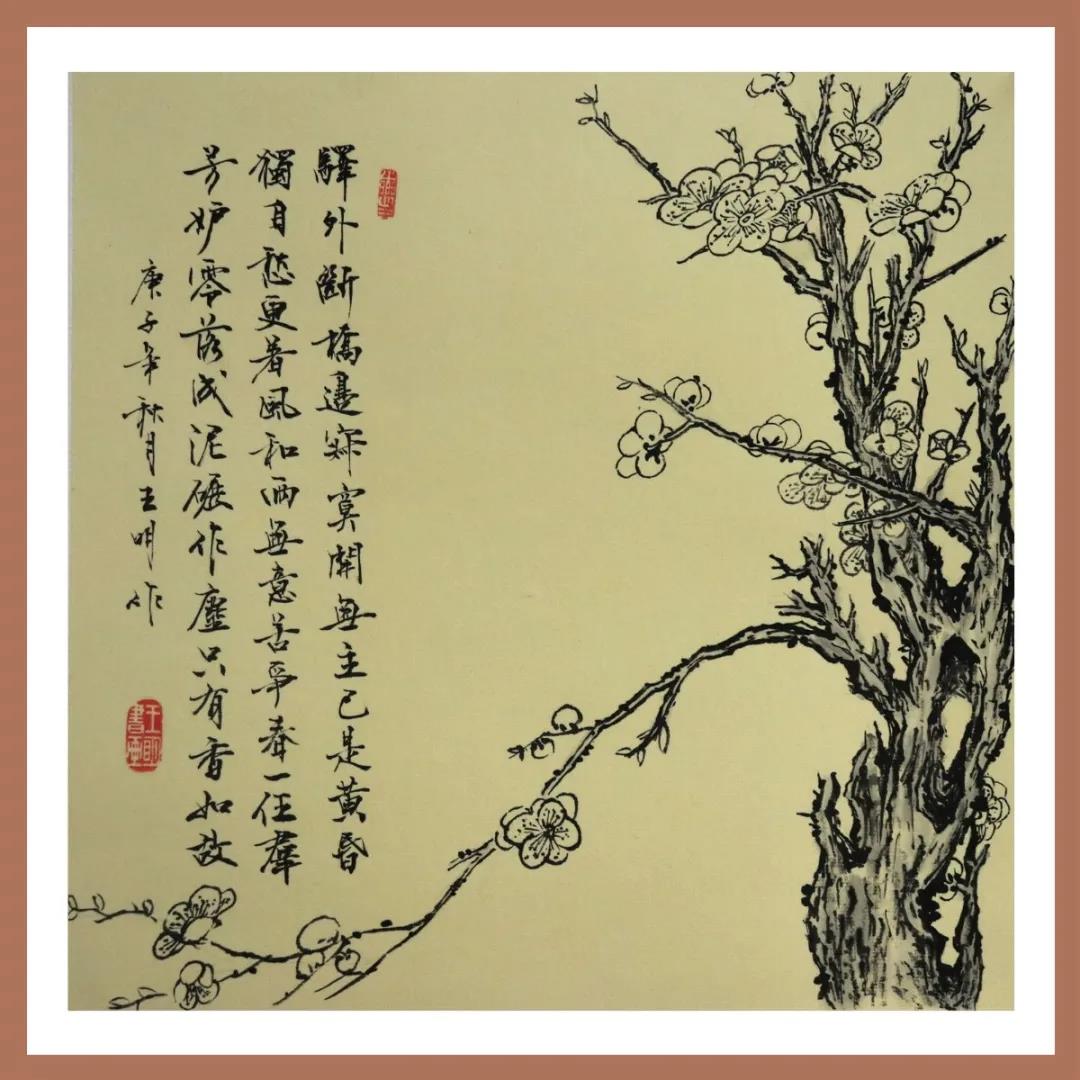 驛外斷橋邊寂寞開無主已是黃昏
獨自愁更着風和雨無意苦爭春一任羣
芳妒零落成泥碾作塵只有香如故
庚子年秋月王明作
王明書画